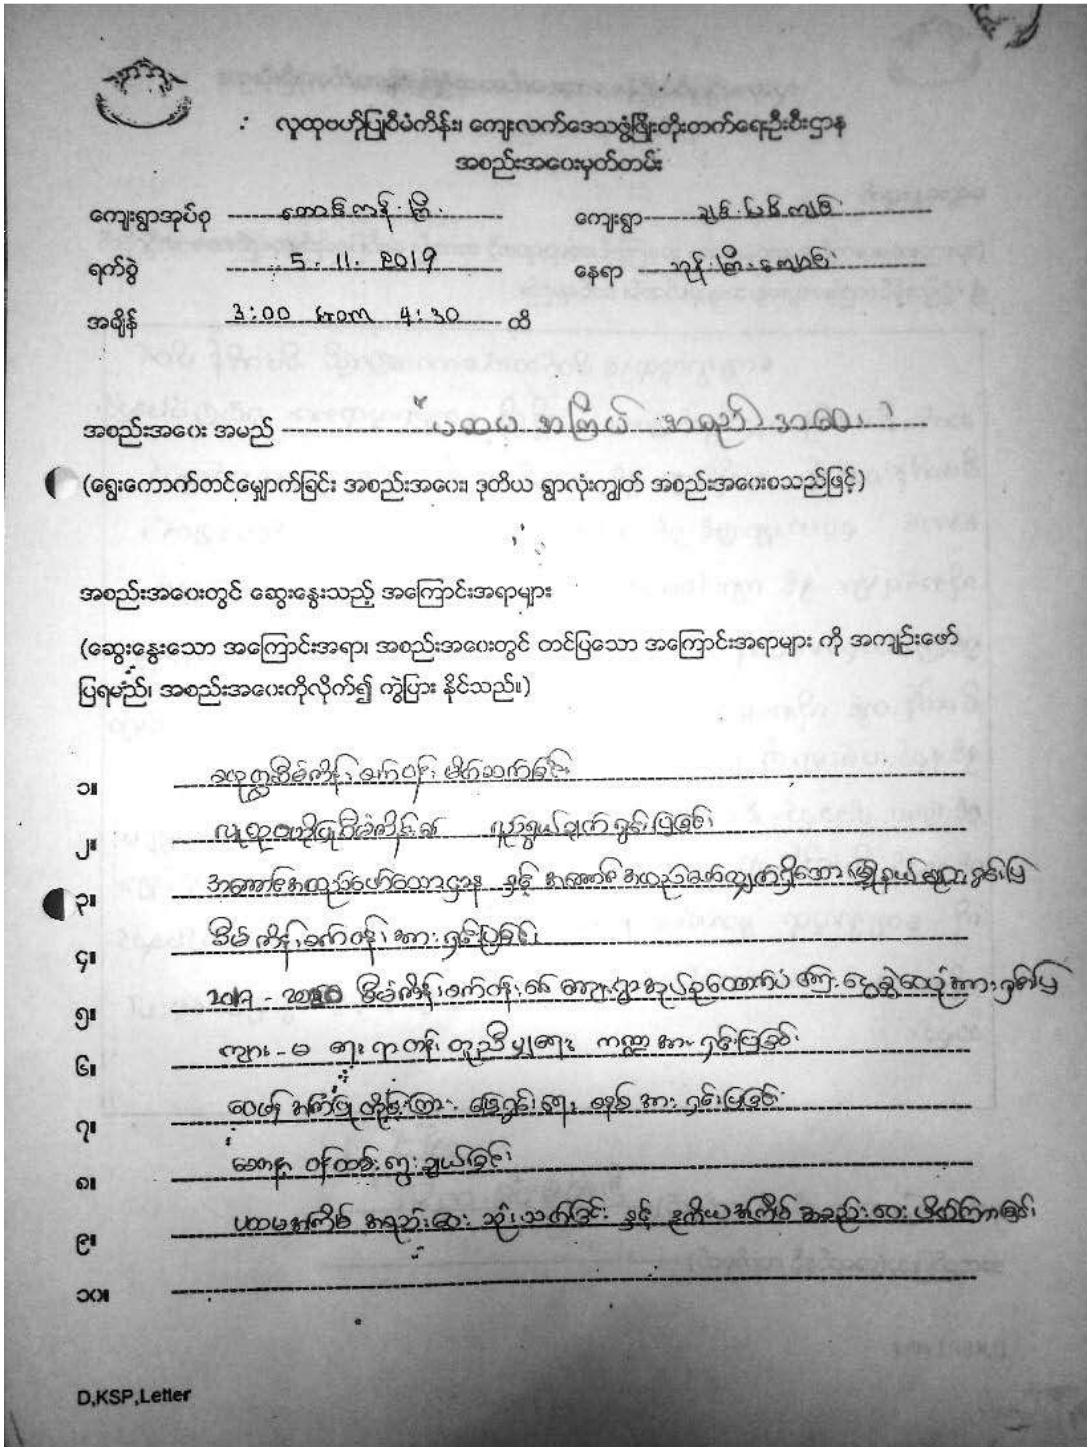 လူထုဗဟိုပြုစီမံကိန်း၊ ကျေးလက်ဒေသဖွံ့ဖြိုးတိုးတက်ရေးဦးစီးဌာန
အစည်းအဝေးမှတ်တမ်း
ကျေးရွာအုပ်စု ကျေးရွာ
ရက်စွဲ 5.11.2019 နေရာ ဘုန်းကြီးကျောင်း
အချိန် 3:00 from 4:30 ထိ
အစည်းအဝေး အမည် "ပထမ အကြိမ် အစည်းအဝေး"
(ရွေးကောက်တင်မြှောက်ခြင်း အစည်းအဝေး၊ ဒုတိယ ရွာလုံးကျွတ် အစည်းအဝေးစသည်ဖြင့်)
အစည်းအဝေးတွင် ဆွေးနွေးသည့် အကြောင်းအရာများ
(ဆွေးနွေးသော အကြောင်းအရာ၊ အစည်းအဝေးတွင် တင်ပြသော အကြောင်းအရာများ ကို အကျဉ်းဖော်
ပြရမည်၊ အစည်းအဝေးကိုလိုက်၍ ကွဲပြား နိုင်သည်။)
၁။ စီမံကိန်းဝက်ဝန်း မိတ်ဆက်ခြင်း
၂။ လူထုဗဟိုပြုစီမံကိန်း၏ ရည်ရွယ်ချက် ရှင်းပြခြင်း
၃။ အကောင်အထည်ဖော်သောဌာန နှင့် အကောင်အထည်ဖော်လျက်ရှိသော မြို့နယ်များ ရှင်းပြ
၄။ စီမံကိန်းစက်ဝန်းအား ရှင်းပြခြင်း
၅။ စီမံကိန်းစက်ဝန်း၏ ကျေးရွာအုပ်စုထောက်ပံ့ကြေးငွေခွဲဝေပုံအား ရှင်းပြ
၆။ ကျား - မ ရေးရာ တန်းတူညီမျှရေး ကဏ္ဍအား ရှင်းပြခြင်း
၇။ ဝေဖန် အကြံပြု တိုင်ကြား ဖြေရှင်းရေး စနစ် အား ရှင်းပြခြင်း
၈။ စေတနာ့ ဝန်ထမ်း ရွေးချယ်ခြင်း
၉။ ပထမအကြိမ် အစည်းအဝေး သုံးသပ်ခြင်း နှင့် ဒုတိယအကြိမ် အစည်းအဝေး ဖိတ်ကြားခြင်း
၁၀။
D,KSP,Letter